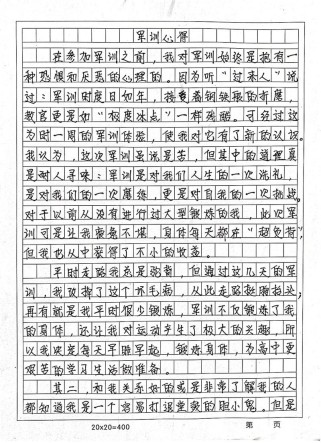 军训心得
在参加军训之前，我对军训始终是抱有一
种恐惧和厌恶的心理的。因为听“过来人”说
过：军训时度日如年，接受着钢铁般的折磨，
教官更是如“极度冰点”一样残酷。可经过这
为时一周的军训体验，使我对它有了新的认识。
我认为，这次军训虽说是苦，但其中的道理真
是耐人寻味：军训是对我们人生的一次洗礼，
是对我们的一次磨练，更是对自我的一次挑战。
对于以前从没有进行过大型锻炼的我，此次军
训可是让我疲惫不堪，身体每天都在“超负荷”
但我也从中获得了不小的收益。
平时走路我总是驼着，但通过这几天的军
训，我改掉了这个坏毛病，从此走路挺胸抬头，
再有就是我平时很少锻炼，军训不仅锻炼了我
的身体，还让我对运动产生了极大的兴趣，所
以我决定每天早睡早起，锻炼身体，为高中更
艰苦的学习生活做准备。
其二，和我关系好的或是非常了解我的人
都知道我是一个容易打退堂鼓的胆小鬼。但是
20×20=400
第 页